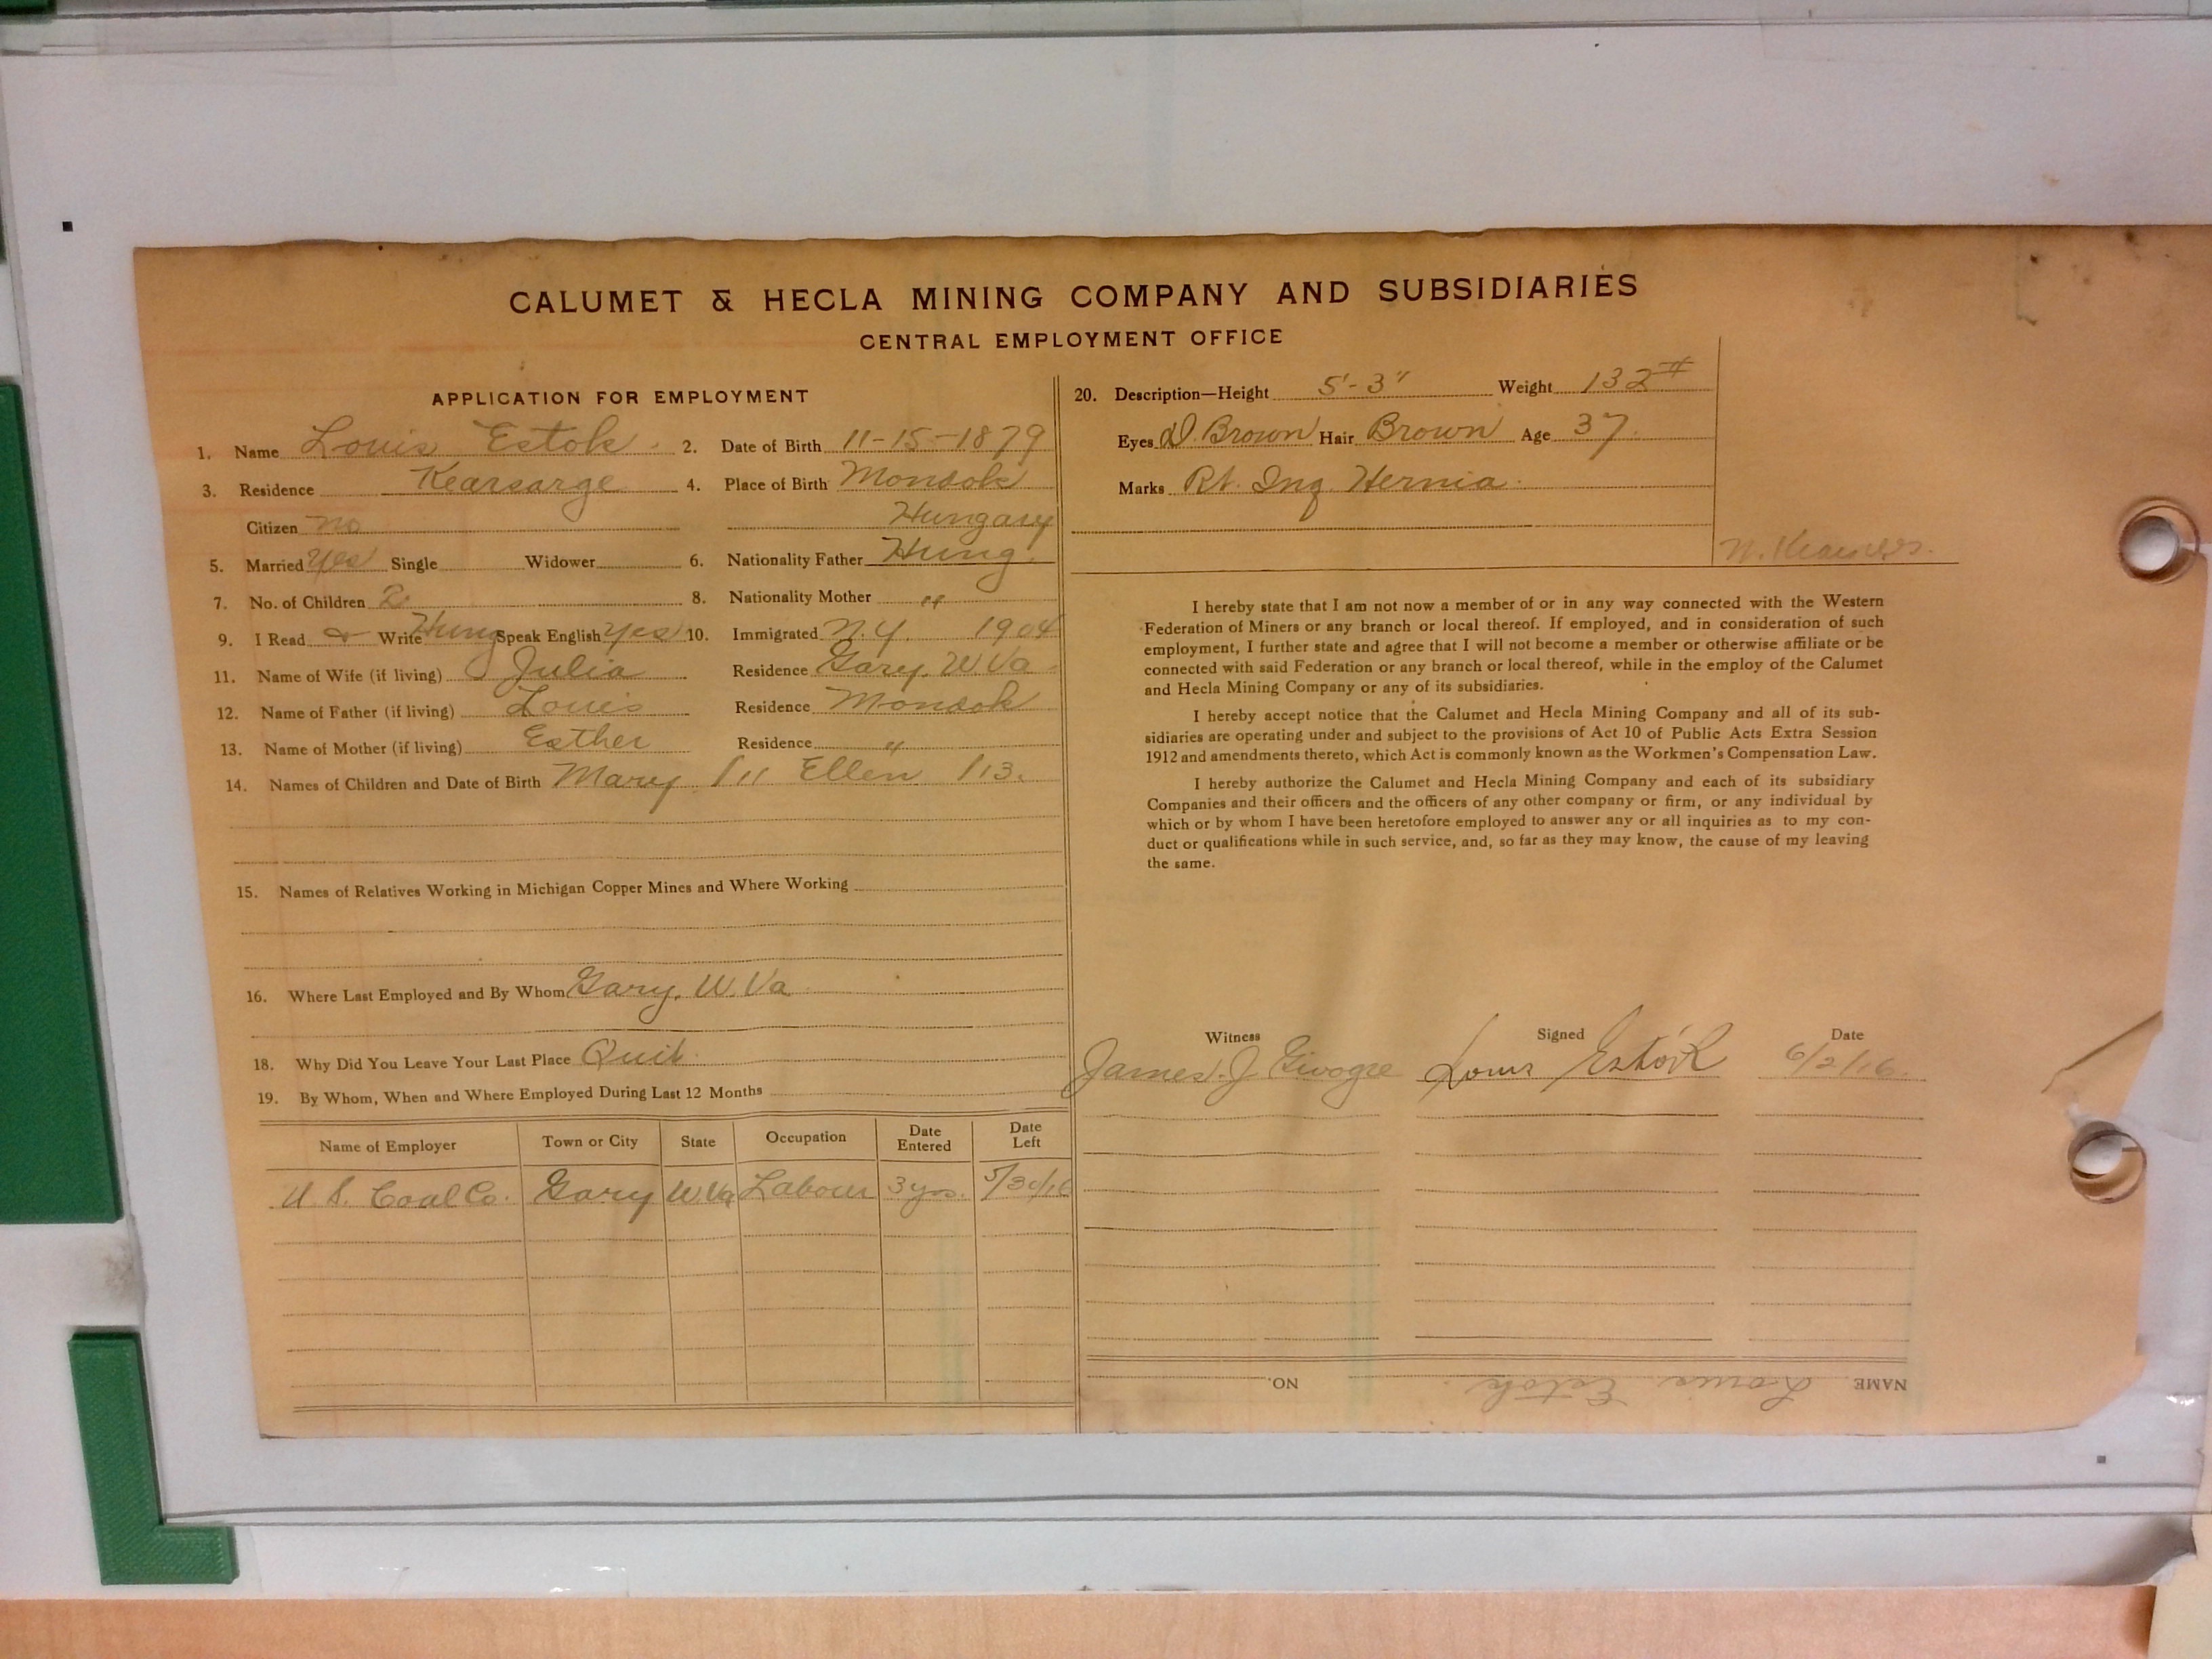 CALUMET & HECLA MINING COMPANY AND SUBSIDIARIES
CENTRAL EMPLOYMENT OFFICE
APPLICATION FOR EMPLOYMENT
1. Name Louis Estok 2. Date of Birth 11-15-1879
3. Residence Kearsarge 4. Place of Birth Mondok
Citizen no Hungary
5. Married Yes Single Widower 6. Nationality Father Hung.
7. No. of Children 2 8. Nationality Mother "
9. I Read & Write Hung Speak English Yes 10. Immigrated N.Y. 1904
11. Name of Wife (if living) Julia Residence Gary, W.Va
12. Name of Father (if living) Louis Residence Mondok
13. Name of Mother (if living) Esther Residence "
14. Names of Children and Date of Birth Mary /11 Ellen /13.
15. Names of Relatives Working in Michigan Copper Mines and Where Working
16. Where Last Employed and By Whom Gary, W.Va
18. Why Did You Leave Your Last Place Quit
19. By Whom, When and Where Employed During Last 12 Months
Name of Employer Town or City State Occupation Date Entered Date Left
U.S. Coal Co. Gary W.Va Labour 3 yrs. 5/30/16
20. Description—Height 5'-3" Weight 132#
Eyes D. Brown Hair Brown Age 37
Marks Rt. Ing. Hernia
I hereby state that I am not now a member of or in any way connected with the Western
Federation of Miners or any branch or local thereof. If employed, and in consideration of such
employment, I further state and agree that I will not become a member or otherwise affiliate or be
connected with said Federation or any branch or local thereof, while in the employ of the Calumet
and Hecla Mining Company or any of its subsidiaries.
I hereby accept notice that the Calumet and Hecla Mining Company and all of its sub-
sidiaries are operating under and subject to the provisions of Act 10 of Public Acts Extra Session
1912 and amendments thereto, which Act is commonly known as the Workmen's Compensation Law.
I hereby authorize the Calumet and Hecla Mining Company and each of its subsidiary
Companies and their officers and the officers of any other company or firm, or any individual by
which or by whom I have been heretofore employed to answer any or all inquiries as to my con-
duct or qualifications while in such service, and, so far as they may know, the cause of my leaving
the same.
Witness Signed Date
James J. Louis Estók 6/2/16.
NAME Louis Estok NO.